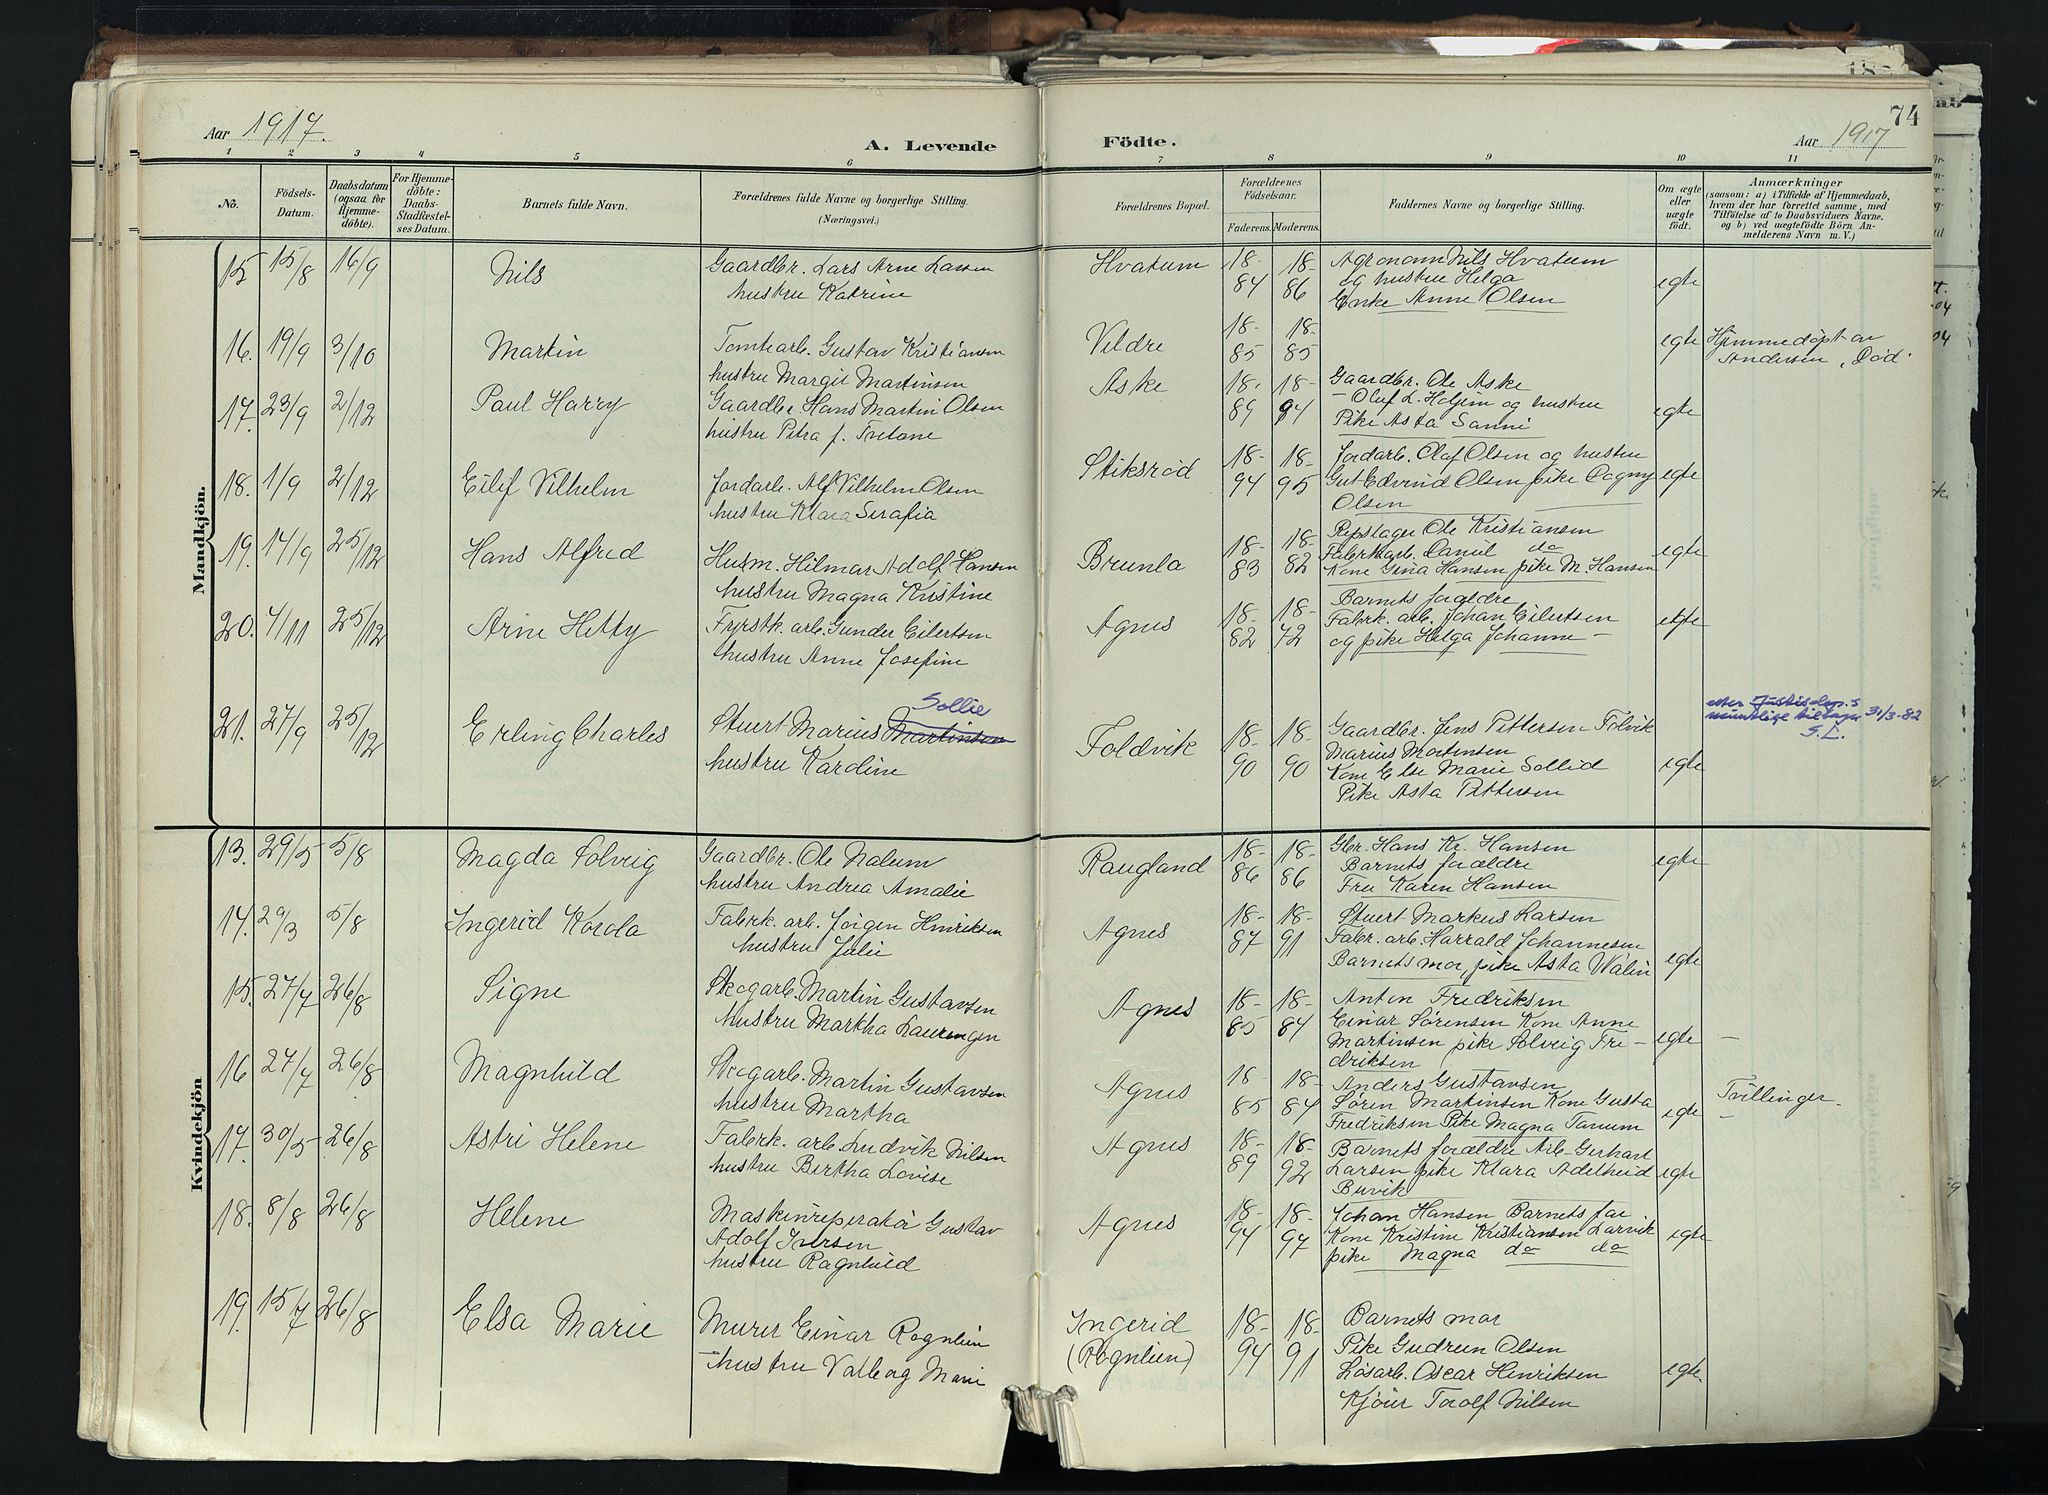 74
Aar 1917.
A. Levende
Födte.
Aar 1917
1 2 3 4 5 6 7 8 9 10 11
No.
Födsels-
Datum.
Daabsdatum
(ogsaa for
Hjemme-
döbte).
For Hjemme-
döbte:
Daabs-
Stadfæstel-
ses Datum.
Barnets fulde Navn.
Forældrenes fulde Navne og borgerlige Stilling.
(Næringsvei.)
Forældrenes Bopæl.
Forældrenes
Födselsaar.
Faderens. Moderens.
Faddernes Navne og borgerlige Stilling.
Om ægte
eller
uægte
födt.
Anmærkninger
(saasom: a) i Tilfælde af Hjemmedaab,
hvem der har forrettet samme, med
Tilföielse af to Daabsvidners Navne.
og b) ved uægtefödte Börn An-
melderens Navn m. V.)
Mandkjön.
15 15/8 16/9 Nils
Gaardbr. Lars Arne Larsen
hustru Katrine
Hvatum 18-84 18-86
Agronom Nils Hvatum
og hustru Helga
Enke Anne Olsen
egte
16. 19/9 3/10 Martin
Tomtearb. Gustav Kristiansen
hustru Margit Martinsen
Vildre 18-85 18-85
egte
Hjemmedöpt av
Andersen, Död.
17. 23/9 2/12 Paul Harry
Gaardbr. Hans Martin Olsen
hustru Petra f. Tretone
Aske 18-89 18-94
Gaardbr. Ole Aske
- Oluf L. Holjem og hustru
Pike Asta Sanni
egte
18. 1/9 2/12 Eilef Vilhelm
Jordarb. Alf Vilhelm Olsen
hustru Klara Serafia
Stiksröd 18-94 18-95
Jordarb. Olaf Olsen og hustru
Gut Edvind Olsen pike Dagny
Olsen
egte
19. 14/9 25/12 Hans Alfred
Husm. Hilmar Adolf Hansen
hustru Magna Kristine
Brunla 18-83 18-82
Repslager Ole Kristiansen
Fabrikkarb. Daniel do
Kone Gina Hansen pike M. Hansen
egte
20. 4/11 25/12 Arne Hetty
Fyrstk. arb. Gunder Eilertsen
hustru Anne Josefine
Agnes 18-82 18-72
Barnets forældre
Fabrk. arb. Johan Eilertsen
og pike Helga Johanne -
egte
21. 27/9 25/12 Erling Charles
Sollie
Stuert Marius Martinsen
hustru Kardine
Foldvik 18-90 18-90
Gaardbr. Jens Pettersen Folvik
Marius Martinsen
Kone Else Marie Sollid
Pike Asta Pettersen
egte
etter Justisdep.s
muntlige 31/3-82
S.L.
Kvindekjön
13. 29/5 5/8 Magda Solveig
Gaardbr. Ole Nalum
hustru Andrea Amalie
Raugland 18-86 18-86
Gbr. Hans Kr. Hansen
Barnets forældre
Fru Karen Hansen
egte
14. 29/3 5/8 Ingerid Korola
Fabrk. arb. Jörgen Henriksen
hustru Julie
Agnes 18-87 18-91
Stuert Markus Larsen
Fabr. arb. Harrald Johannesen
Barnets mor, pike Asta Walin
egte
15. 27/7 26/8 Signe
Skogarb. Martin Gustavsen
hustru Martha Laurengen
Agnes 18-85 18-84
Anton Fredriksen
Einar Sörensen Kone Anne
Martinsen pike Solveig Fre-
driksen
egte
16 27/7 26/8 Magnhild
Skogarb. Martin Gustavsen
hustru Martha
Agnes 18-85 18-84
Anders Gustavsen
Sören Martinsen Kone Gusta
Fredriksen Pike Magna Tanum
egte
Tvillinger.
17. 30/5 26/8 Astri Helene
Fabrk. arb. Ludvik Nilsen
hustru Birtha Lovise
Agnes 18-89 18-92
Barnets forældre Arb. Gerhart
Larsen pike Klara Adelheid
Buvik
egte
18. 8/8 26/8 Helene
Maskinreperatör Gustav
Adolf Iversen
hustru Ragnhild
Agnes 18-94 18-97
Johan Hansen Barnets far
Kone Kristine Kristiansen Larvik
pike Magna do do
egte
19. 15/7 26/8 Elsa Marie
Murer Einar Rognlien
hustru Valborg Marie
Ingerid
(Rognlien)
18-94 18-91
Barnets mor
Pike Gudrun Olsen
Lösarb. Oscar Henriksen
Kjöier Torolf Nilsen
egte.